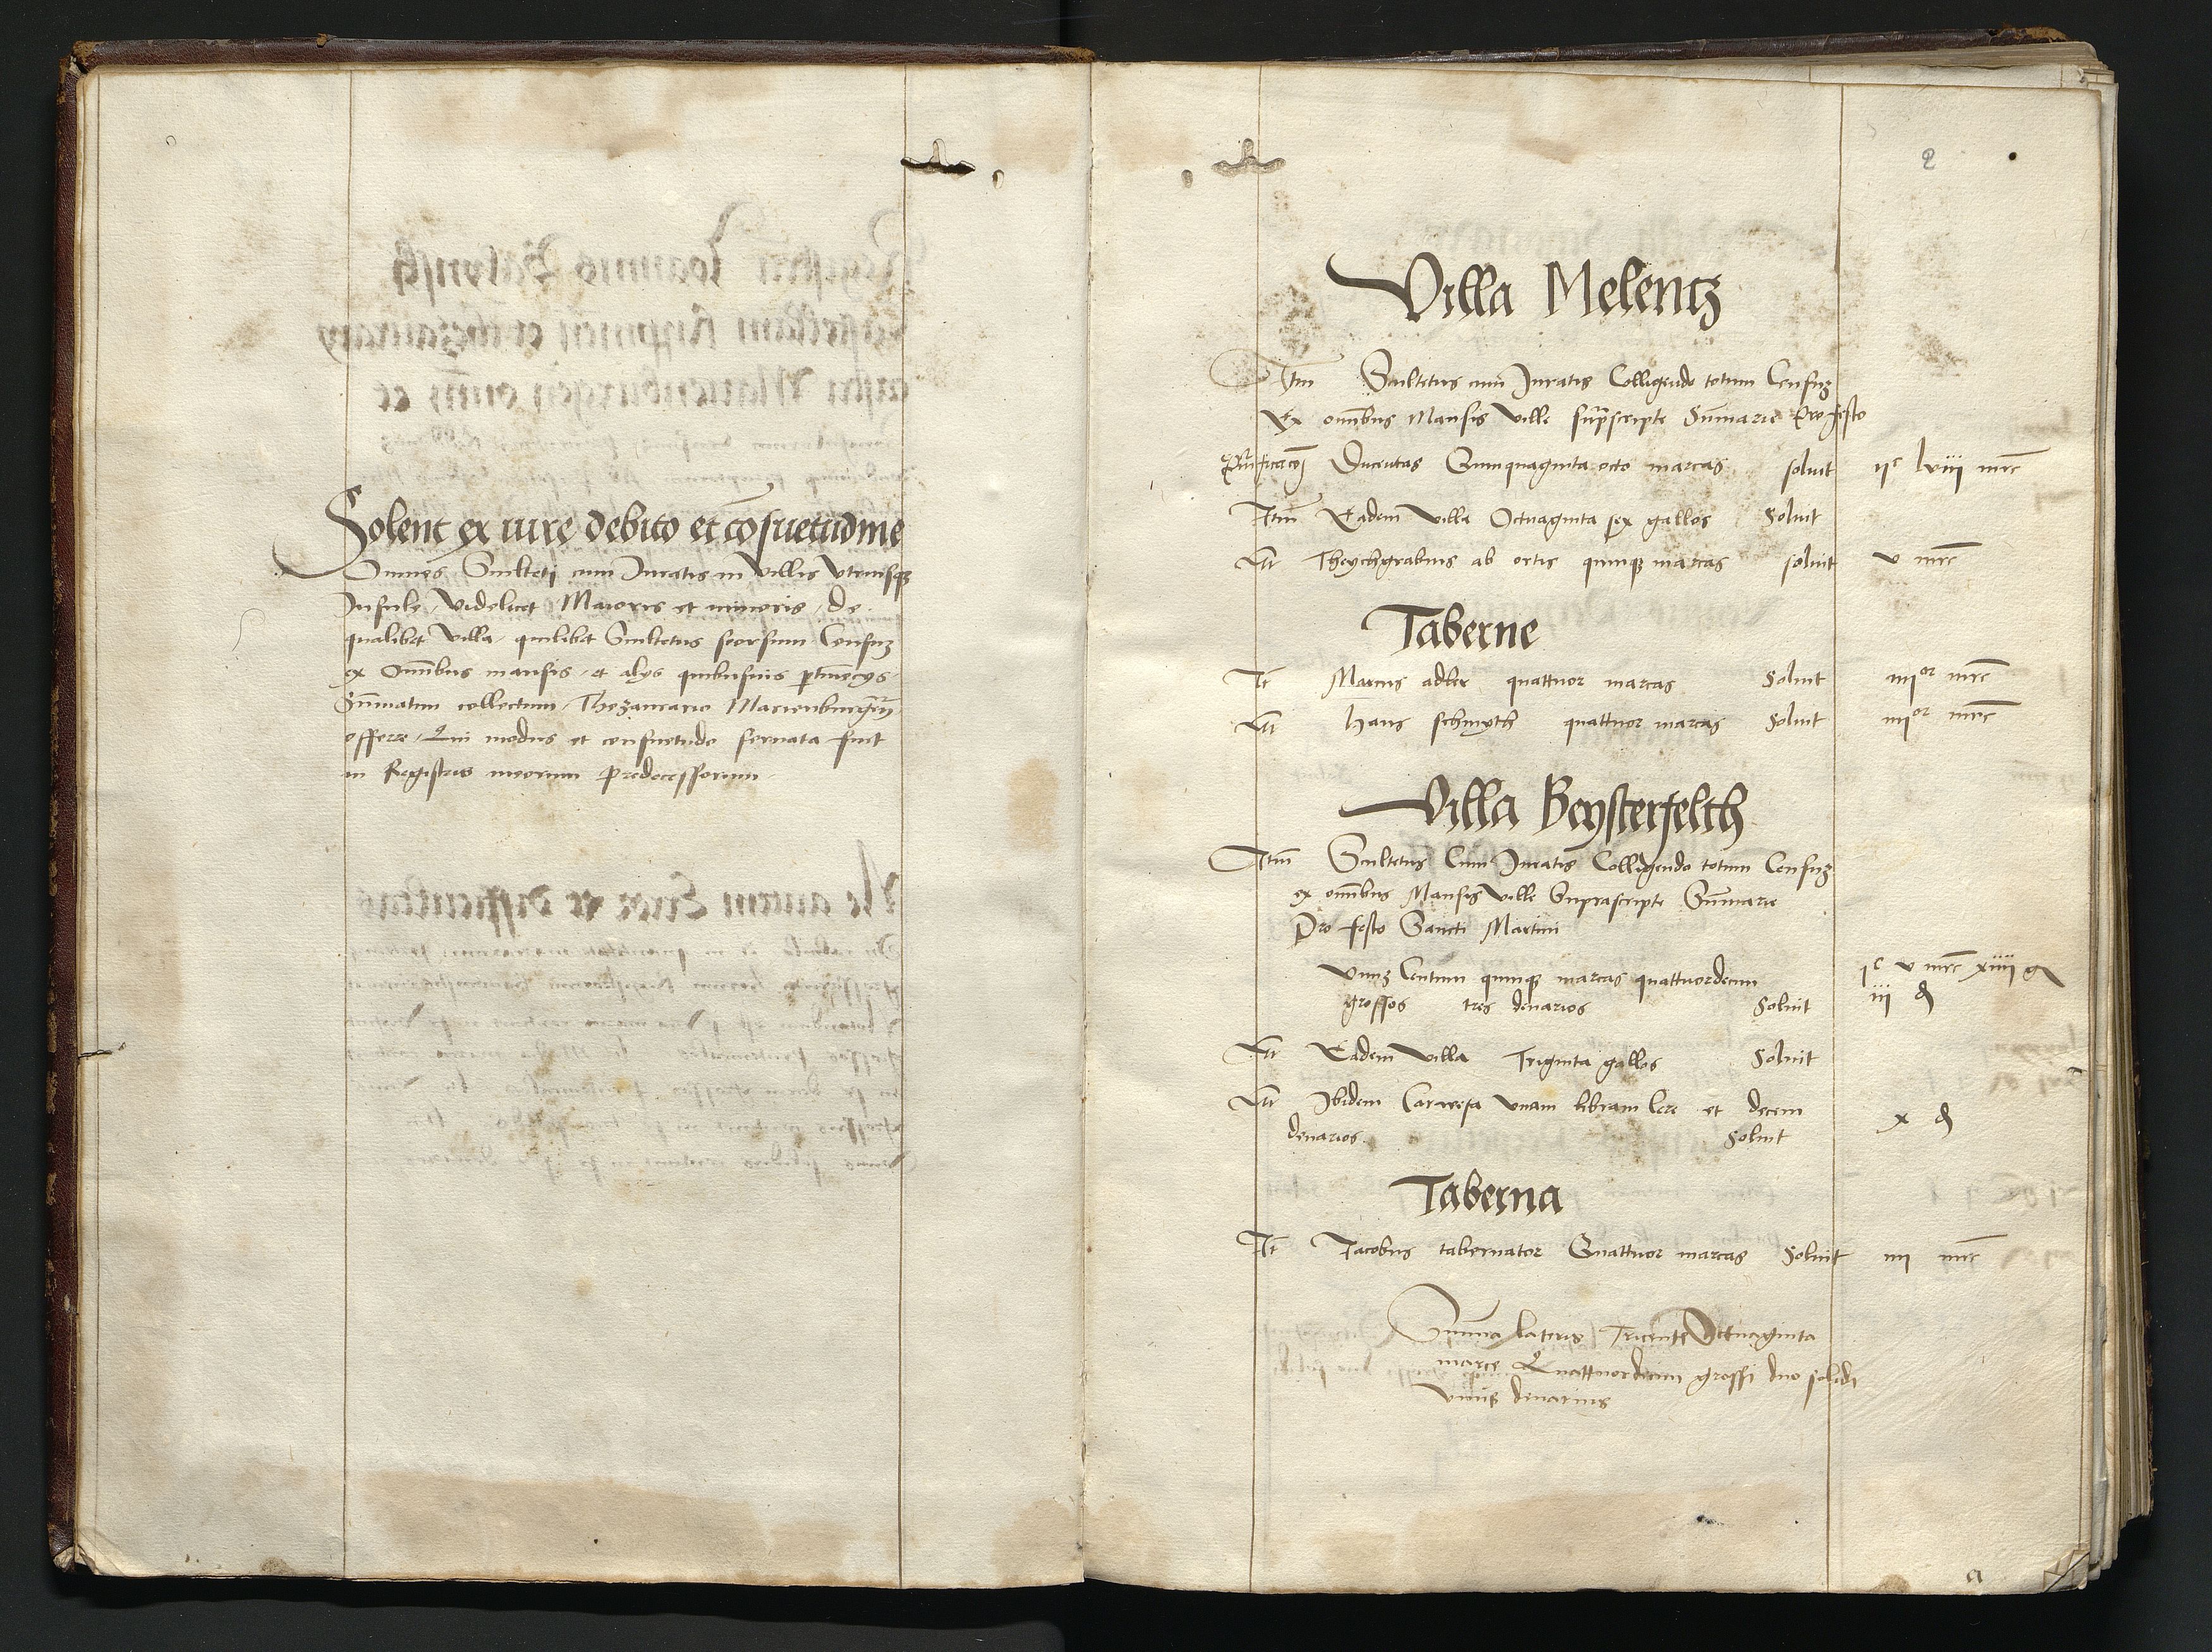 Solent ex iure debito et cōsuetudine
Omnes Sculteti cum Juratis in Villis Vtriusq3
Insule, Videlicet Maioris et minoris, de
qualibet Villa, quilibet Scultetus seorsum Censu3
ex Omībus mansis, et alijs quibusuis ptinēcys,
Sūmatim collectum, Thezaurario Marienburgēn
offerre, Qui modus et consuetudo seruata fuit
in Registris meorum predecessorum
2
Villa Melentz
Itm Scultetus cum Juratis Colligendo totum Censu3
Ex omībus Mansis Ville suprascripte Sūmarie Pro festo
Ducentas Quinquaginta octo marcas soluit IIc lviii mrc
Itm Eadem villa Octuaginta sex gallos Soluit
Itt Theychgrabius ab ortis quinq3 marcas soluit v mrc
Taberne
It Marcus adler quattuor marcas Soluit iiiior mrc
Itt hans schmyth quattuor marcas Soluit iiiior mrc
Villa Beysterfelth
Itm Scultetus Cum Juratis Colligendo totum Censu3
ex omībus Mansis Ville Suprascripte Sūmarie
Pro festo Sancti Martini
Vnu3 Centum quinq3 marcas quattuordecim Ic v mrc xiiii g
grossos tres denarios Soluit iii d
Itt Eadem villa Triginta gallos Soluit
Itt Ibidem Vnam libram Cere et decem
denarios Soluit x d
Taberna
It Jacobus tabernator Quattuor marcas Soluit iiii mrc
Summa lateris Tricente Octuaginta
marce Quattuordecim grossi duo solidi
Vnus denarius
a